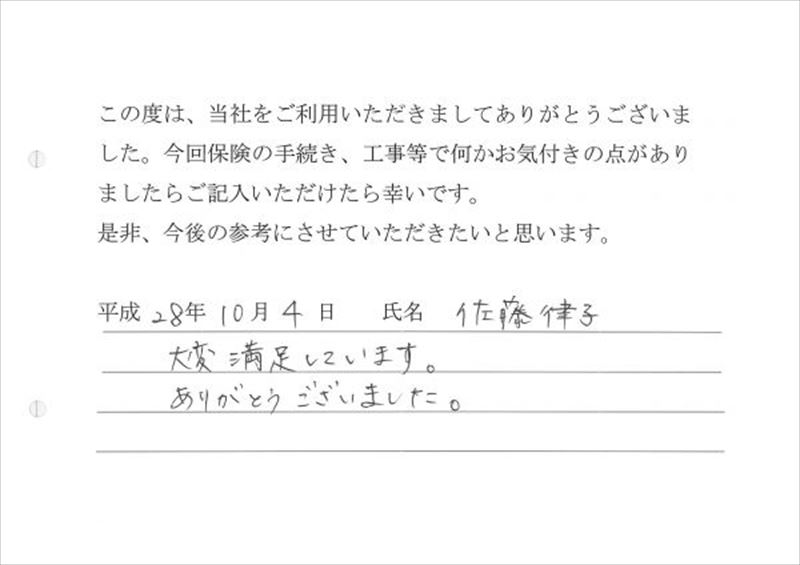 この度は、当社をご利用いただきましてありがとうございま
した。今回保険の手続き、工事等で何かお気付きの点があり
ましたらご記入いただけたら幸いです。
是非、今後の参考にさせていただきたいと思います。
平成 28年 10月 4日 氏名 佐藤律子
大変満足しています。
ありがとうございました。